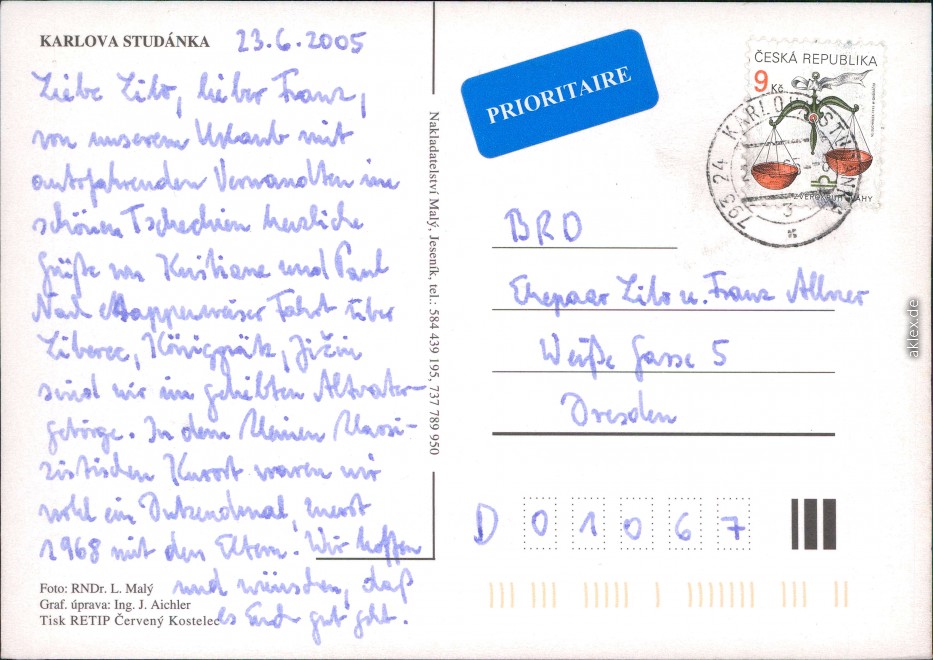 KARLOVA STUDÁNKA 23.6.2005
Liebe Lilo, lieber Franz,
von unserem Urlaub mit
autofahrenden Verwandten im
schönen Tschechien herzliche
Grüße von Kristiane und Paul
Nach etappenweiser Fahrt über
Liberec, Jičín
sind wir im geliebten Altvater-
gebirge. In dem kleinen klassi-
zistischen Kurort waren wir
wohl ein Dutzendmal, zuerst
1968 mit den Eltern. Wir hoffen
und wünschen, daß
es Euch gut geht.
Foto: RNDr. L. Malý
Graf. úprava: Ing. J. Aichler
Tisk RETIP Červený Kostelec
Nakladatelství Malý, Jeseník, tel.: 584 439 195, 737 789 950
PRIORITAIRE
ČESKÁ REPUBLIKA
9 Kč
ZVĚROKRUH VÁHY
793 24 KARLOVA STUDÁNKA
3
BRD
Ehepaar Lilo u. Franz Allner
Weiße Gasse 5
Dresden
D 0 1 0 6 7
aklex.de